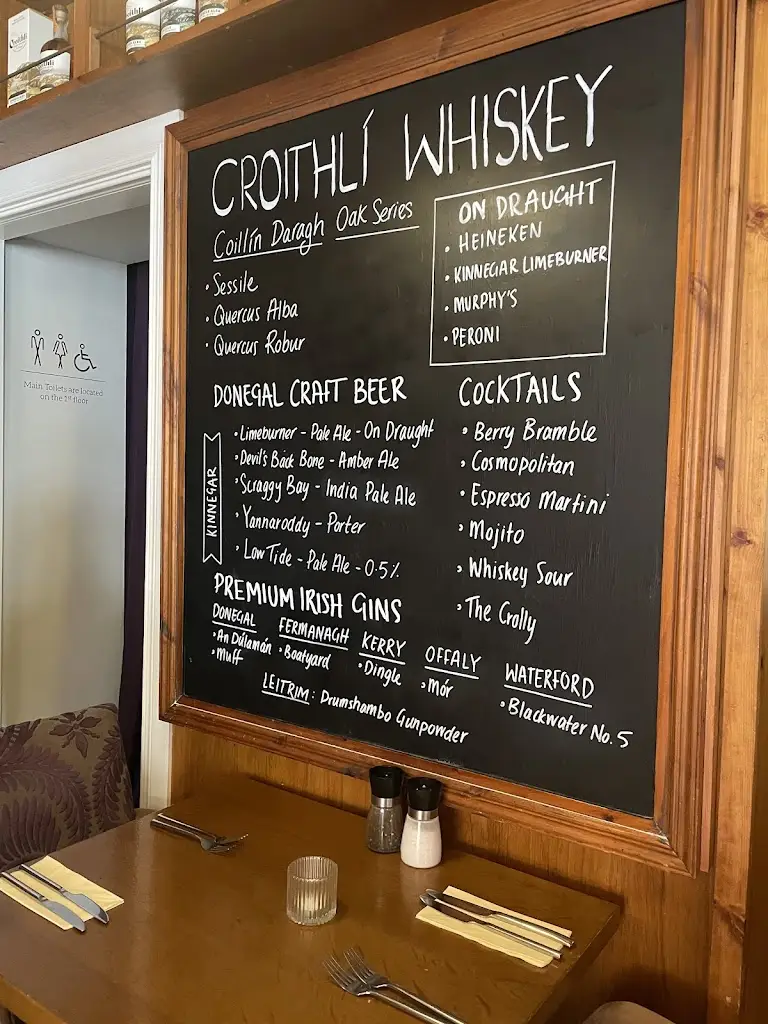 CROITHLÍ WHISKEY
Coillín Daragh Oak Series
• Sessile
• Quercus Alba
• Quercus Robur
ON DRAUGHT
• HEINEKEN
• KINNEGAR LIMEBURNER
• MURPHY'S
• PERONI
DONEGAL CRAFT BEER
KINNEGAR
• Limeburner - Pale Ale - On Draught
• Devil's Back Bone - Amber Ale
• Scraggy Bay - India Pale Ale
• Yannaroddy - Porter
• Low Tide - Pale Ale - 0.5%
COCKTAILS
• Berry Bramble
• Cosmopolitan
• Espresso Martini
• Mojito
• Whiskey Sour
• The Crolly
PREMIUM IRISH GINS
DONEGAL
• An Dúlamán
• Muff
FERMANAGH
• Boatyard
KERRY
• Dingle
OFFALY
• Mór
WATERFORD
• Blackwater No. 5
LEITRIM: Drumshambo Gunpowder
Main Toilets are located
on the 1st floor